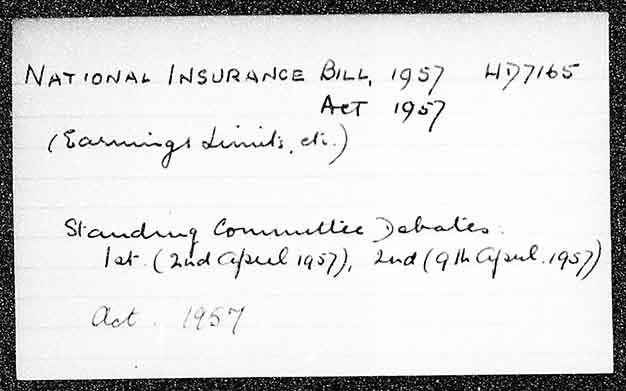 NATIONAL INSURANCE BILL, 1957 HD7165
ACT 1957
(Earnings Limits, etc.)
Standing Committee Debates.
1st. (2nd April 1957), 2nd (9th April. 1957)
Act. 1957